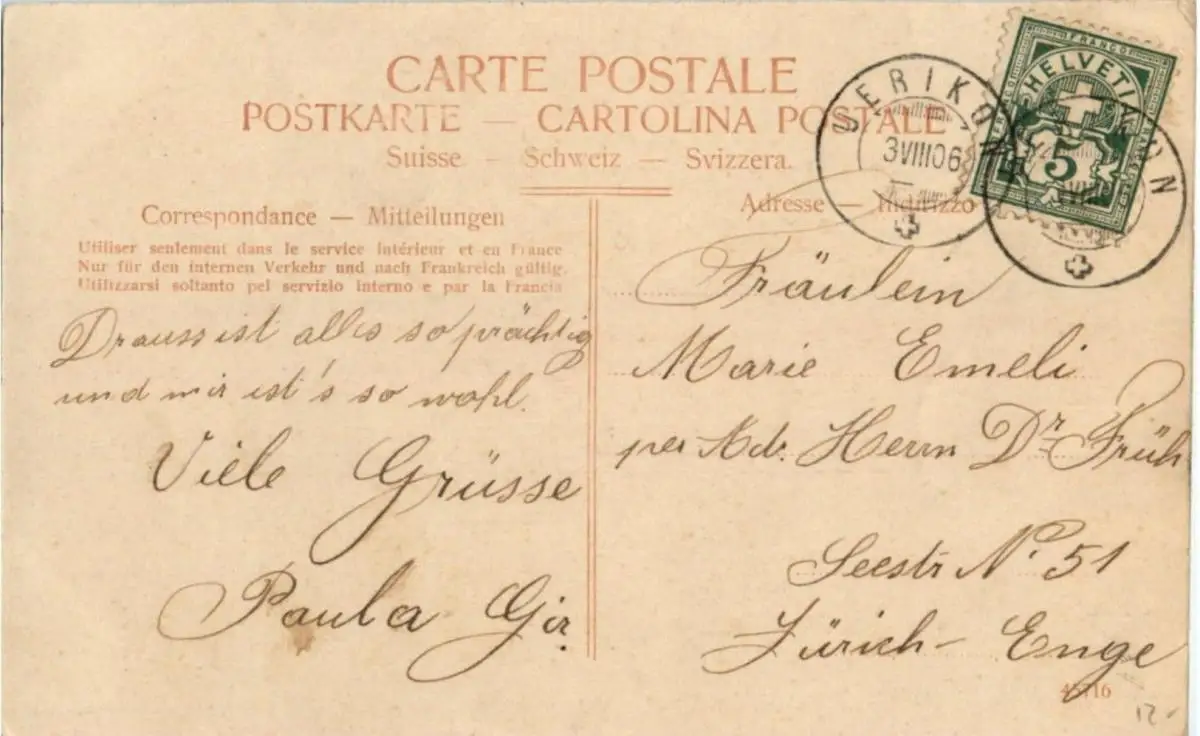 CARTE POSTALE
POSTKARTE — CARTOLINA POSTALE
Suisse – Schweiz — Svizzera.
UERIKON
3VIII06
UERIKON
FRANCO
HELVETIA
5
Correspondance — Mitteilungen
Utiliser seulement dans le service intérieur et en France
Nur für den internen Verkehr und nach Frankreich gültig.
Utilizzarsi soltanto pel servizio interno e par la Francia
Drauss ist alles so prächtig
und mir ist's so wohl.
Viele Grüsse
Paula Gir
Adresse — Indirizzo
Fräulein
Marie Emeli
per Adr. Herrn Dr Früh
Seestr No 51
Zürich - Enge
45716
12.-